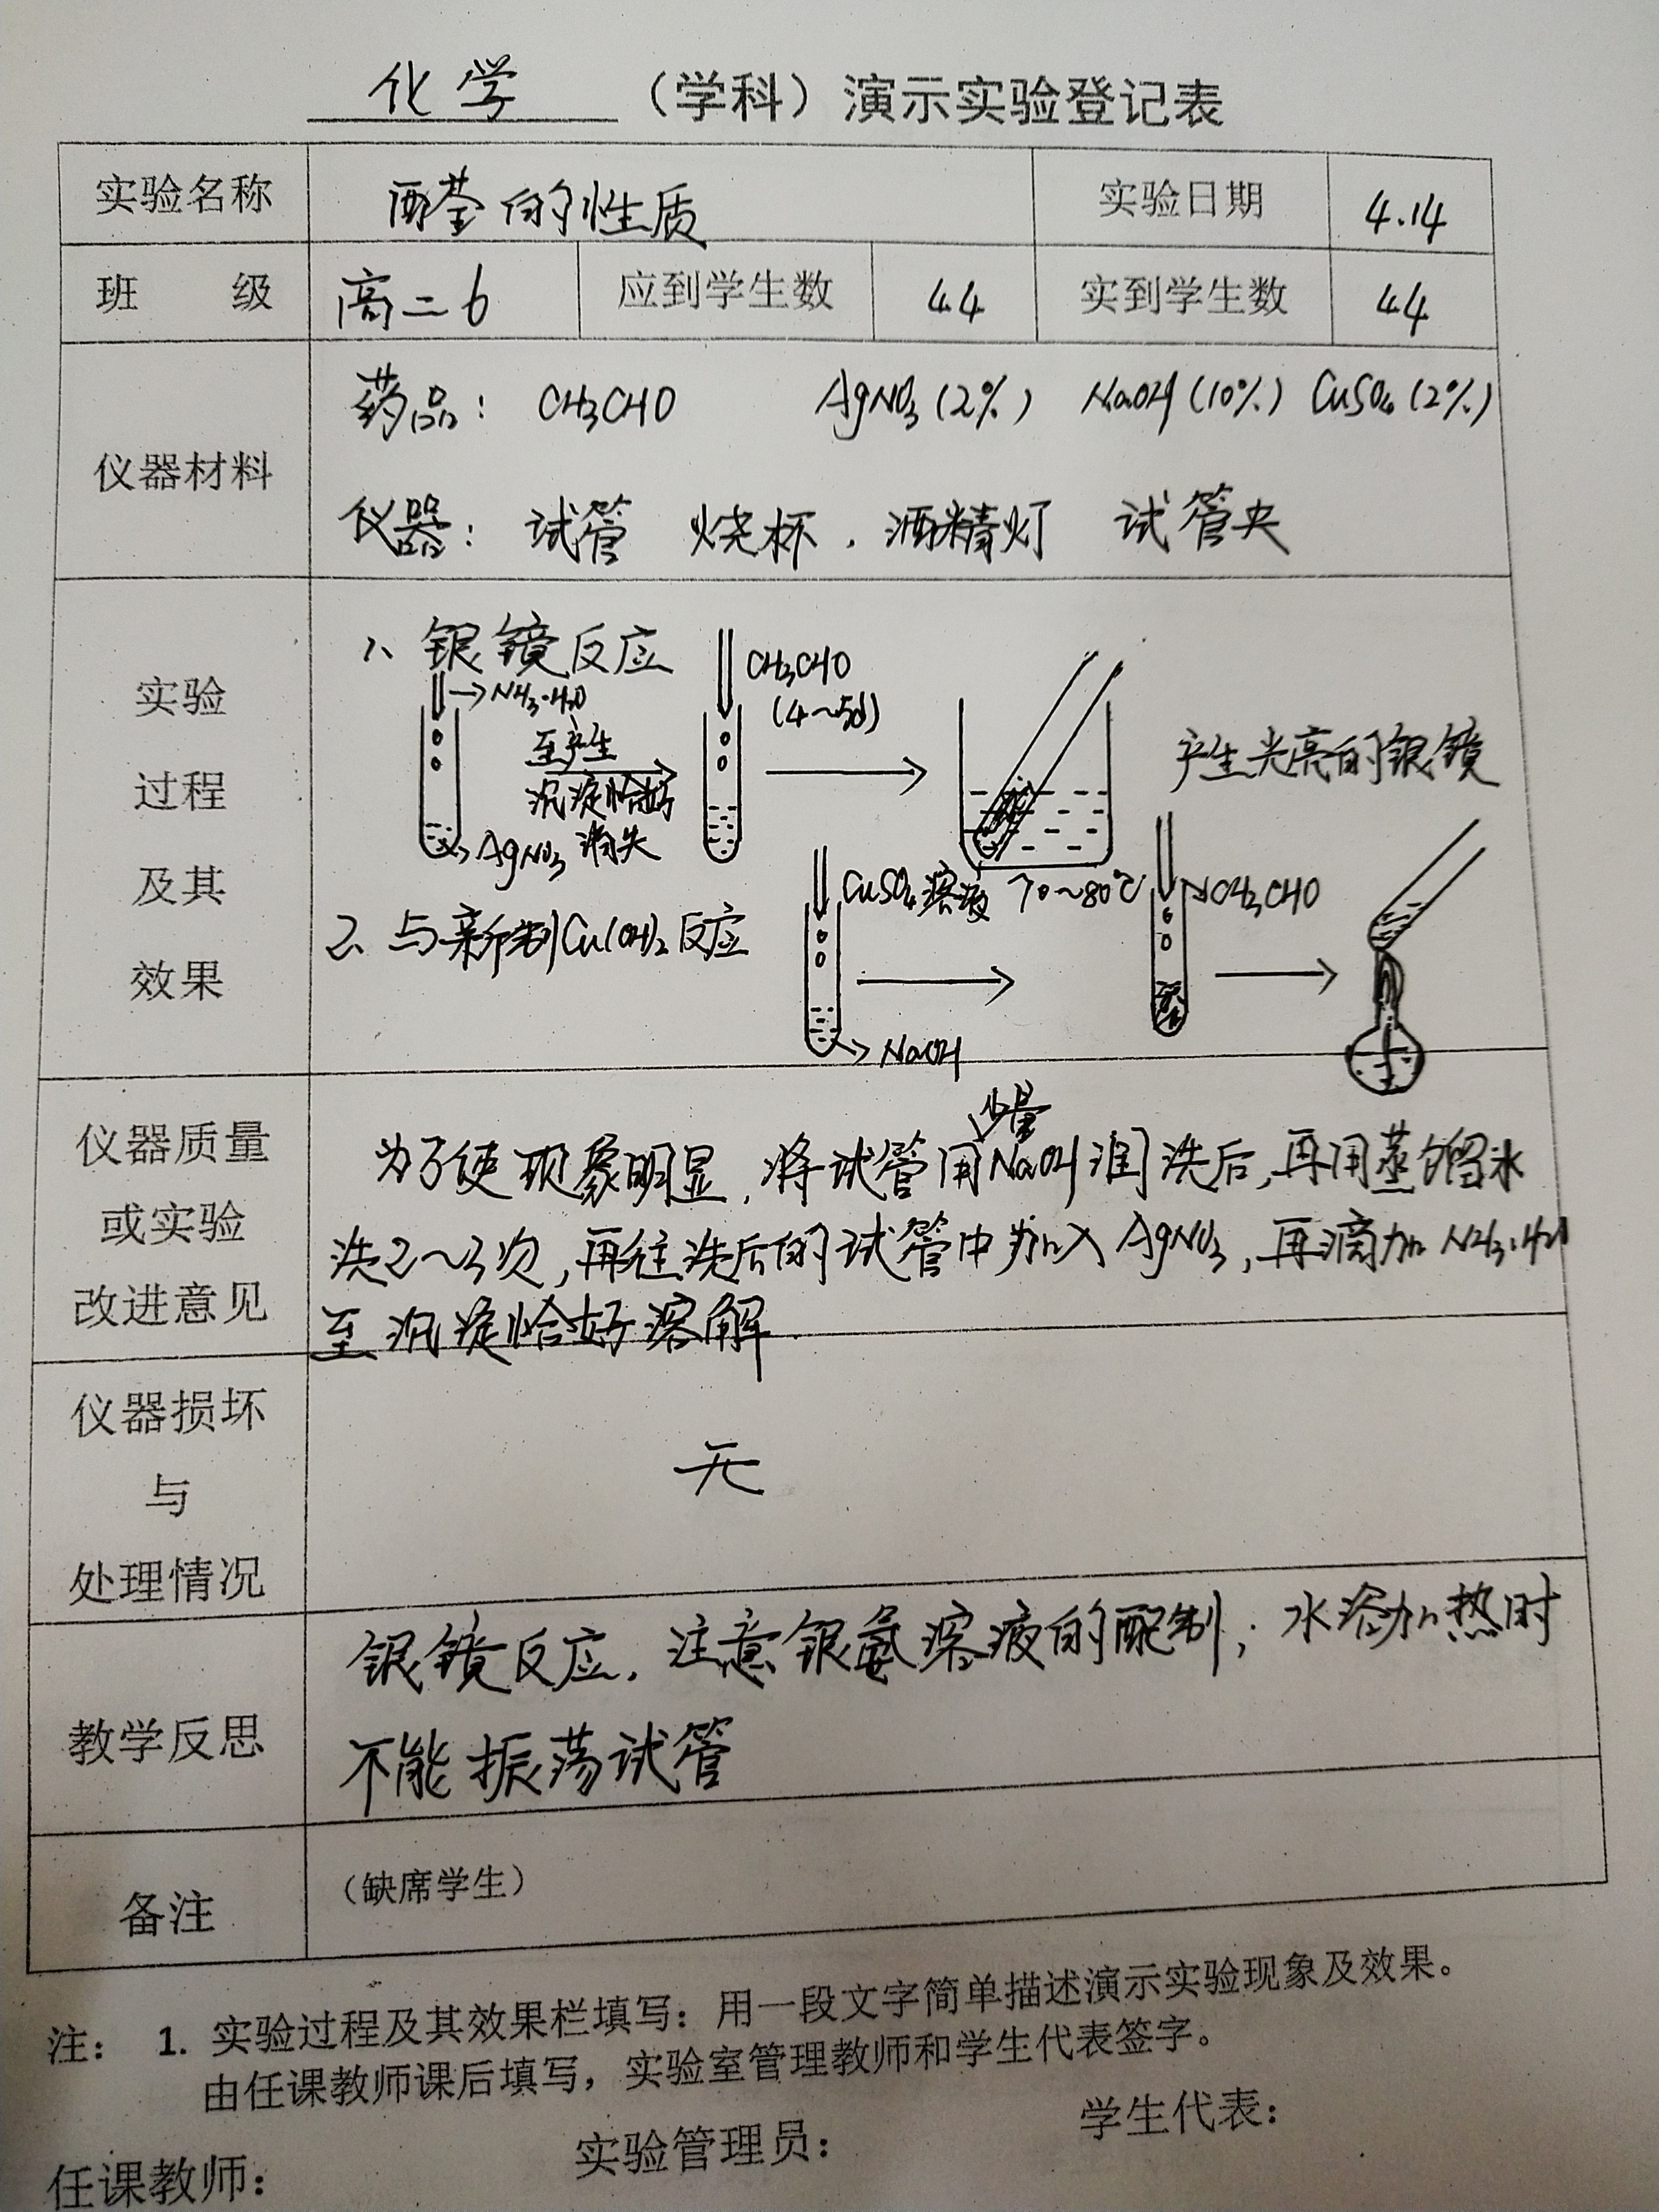 化学（学科）演示实验登记表
实验名称 醛的性质 实验日期 4.14
班 级 高二6 应到学生数 44 实到学生数 44
仪器材料
药品： CH₃CHO AgNO₃（2%） NaOH（10%） CuSO₄（2%）
仪器： 试管 烧杯 . 酒精灯 试管夹
实验
过程
及其
效果
1、银镜反应
NH₃·H₂O
至产生
沉淀恰好
消失
AgNO₃
CH₃CHO
（4～5d）
70～80℃
产生光亮的银镜
2、与新制Cu(OH)₂反应
CuSO₄溶液
NaOH
CH₃CHO
仪器质量
或实验
改进意见
少量
为了使现象明显，将试管用NaOH润洗后，再用蒸馏水
洗2～3次，再往洗后的试管中加入AgNO₃，再滴加NH₃·H₂O
至沉淀恰好溶解
仪器损坏
与
处理情况
无
教学反思
银镜反应，注意银氨溶液的配制；水浴加热时
不能振荡试管
备注 （缺席学生）
注： 1. 实验过程及其效果栏填写：用一段文字简单描述演示实验现象及效果。
由任课教师课后填写，实验室管理教师和学生代表签字。
任课教师： 实验管理员： 学生代表：